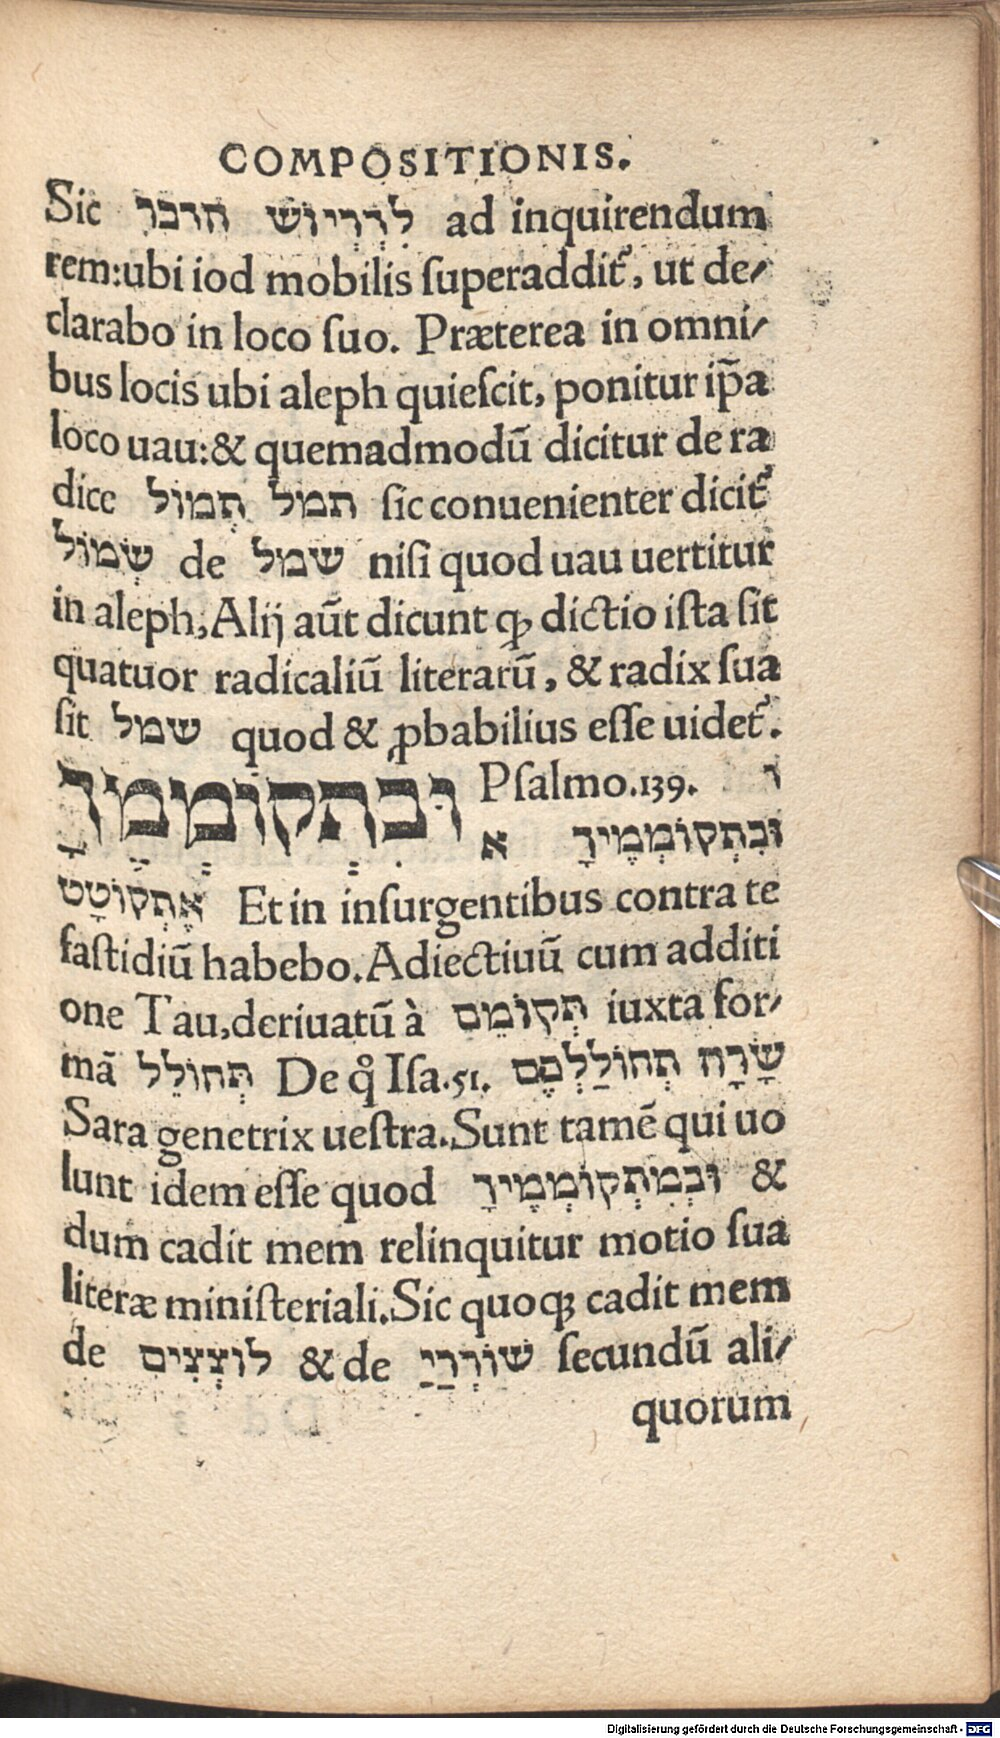 COMPOSITIONIS.
Sic לְדַרְיוֹשׁ הדבר ad inquirendum
rem:ubi iod mobilis ſuperaddit᷒, ut de⸗
clarabo in loco ſuo. Præterea in omni⸗
bus locis ubi aleph quieſcit, ponitur ip̃a
loco uau:& quemadmodũ dicitur de ra
dice תמל תְמוֹל ſic conuenienter dicit᷒
שְׂמוֹל de שמל niſi quod uau uertitur
in aleph, Alij aũt dicunt ꝙ dictio iſta ſit
quatuor radicaliũ literarũ, & radix ſua
ſit שמל quod & ꝓbabilius eſſe uidet᷒.
וּבִתְקוֹמְמֶךָ Pſalmo.139. ו
וּבִתְקוֹמְמֶיךָ א
אֶתְקוֹטָט Et in inſurgentibus contra te
faſtidiũ habebo. Adiectiuũ cum additi
one Tau,deriuatũ à תְּקוֹמֵם iuxta for⸗
mã תְּחוֹלֵל De q̊ Iſa.51. שָׂרָה תְחוֹלַלְכֶם
Sara genetrix ueſtra.Sunt tamẽ qui uo
lunt idem eſſe quod וּבְמִתְקוֹמְמֶיךָ &
dum cadit mem relinquitur motio ſua
literæ miniſteriali.Sic quoꝗ cadit mem
de לוֹצְצִים & de שׁוֹרְרַי ſecundũ ali⸗
quorum
Digitalisierung gefördert durch die Deutsche Forschungsgemeinschaft - DFG